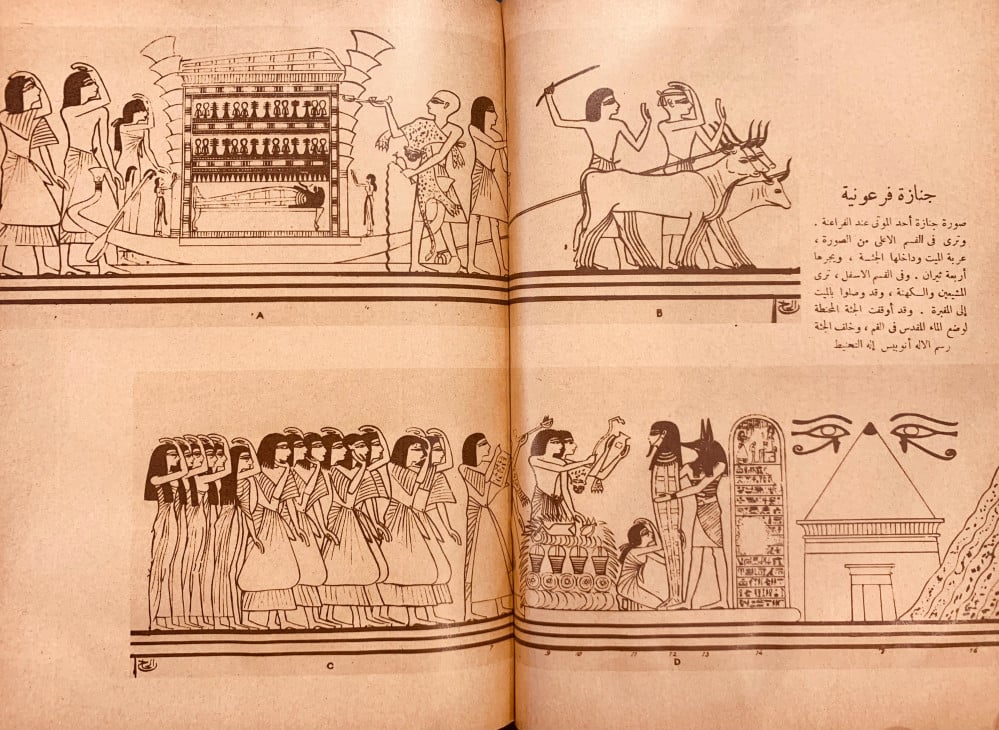 جنازة فرعونية
صورة جنازة أحد الموتى عند الفراعنة .
وترى فى القسم الاعلى من الصورة ،
عربة الميت وداخلها الجثة ، ويجرها
أربعة ثيران . وفى القسم الاسفل ، ترى
المشيعين والكهنة ، وقد وصلوا بالميت
إلى المقبرة . وقد أوقفت الجثة المحنطة
لوضع الماء المقدس فى الفم ، وخلف الجثة
رسم الاله أنوبيس إله التحنيط
A
B
C
D
9 10 12 13 14 15 16